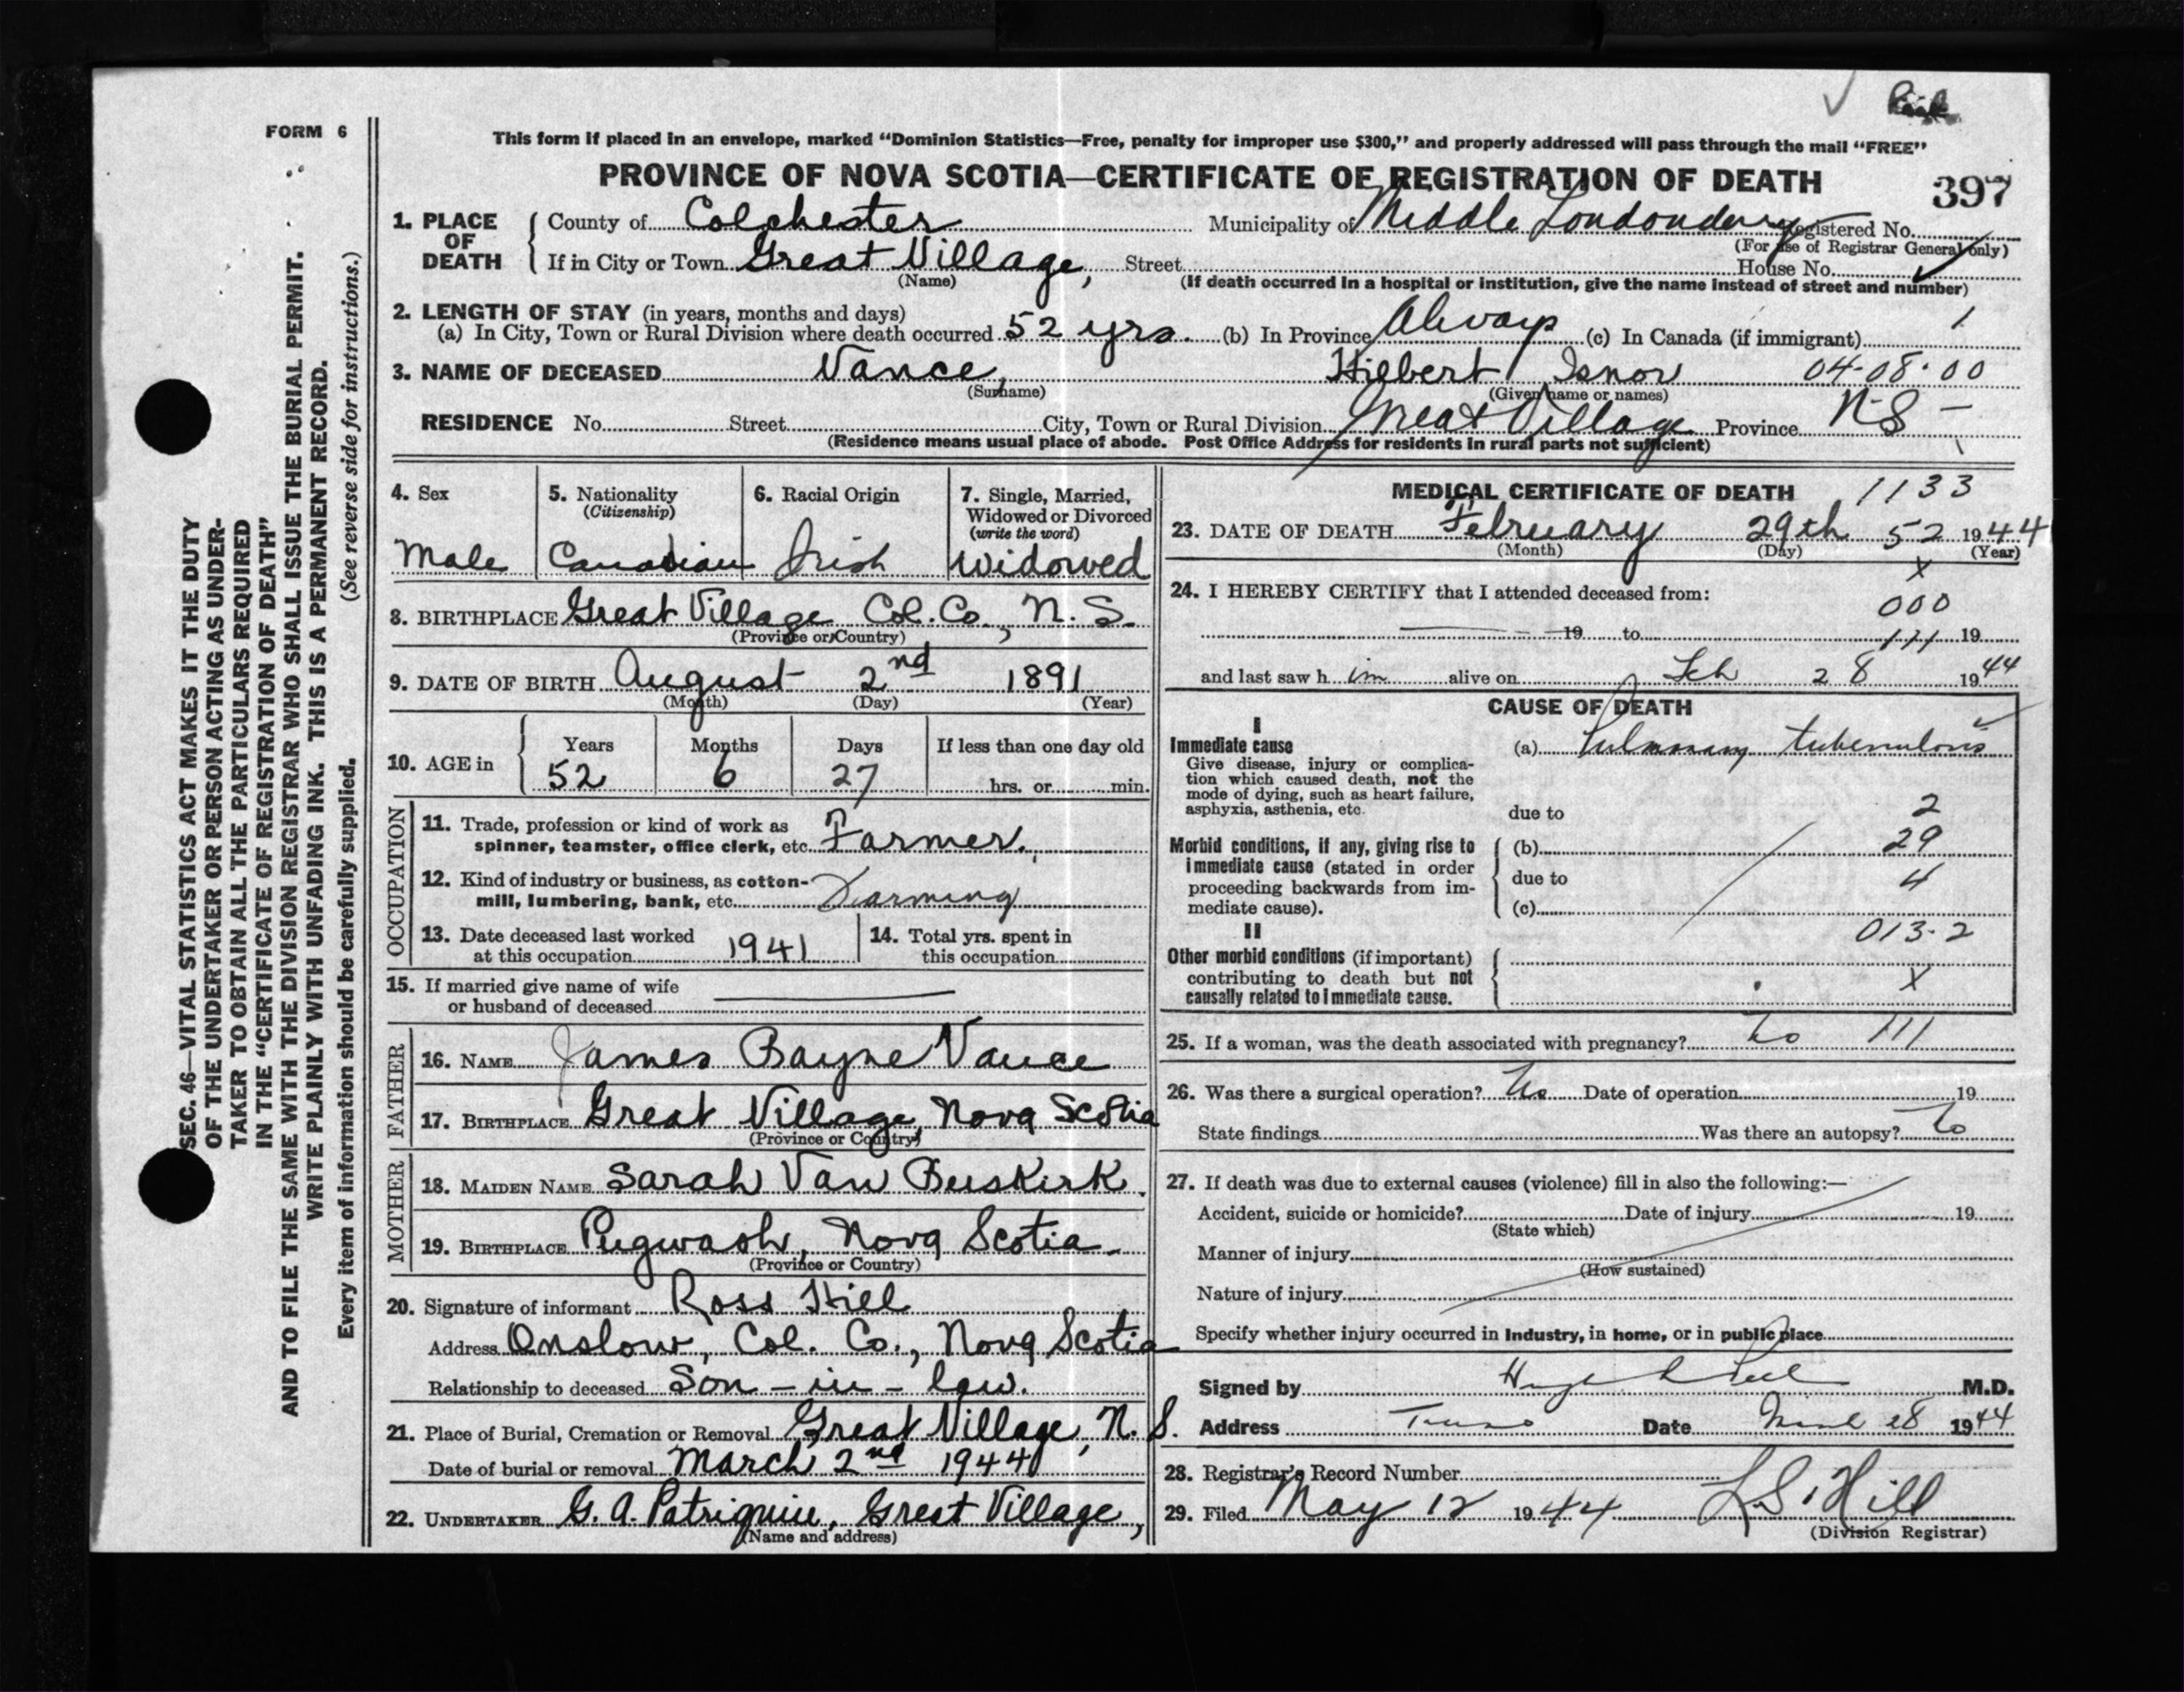 FORM 6
This form if placed in an envelope, marked “Dominion Statistics—Free, penalty for improper use $300,” and properly addressed will pass through the mail “FREE”
PROVINCE OF NOVA SCOTIA—CERTIFICATE OF REGISTRATION OF DEATH
397
1. PLACE OF DEATH
County of Colchester Municipality of Middle Londonderry Registered No.
(For use of Registrar General only)
If in City or Town Great Village, Street House No.
(Name) (If death occurred in a hospital or institution, give the name instead of street and number)
2. LENGTH OF STAY (in years, months and days)
(a) In City, Town or Rural Division where death occurred 52 yrs. (b) In Province Always (c) In Canada (if immigrant) 1
3. NAME OF DECEASED Vance, Hilbert Isnor 04-08-00
(Surname) (Given name or names)
RESIDENCE No. Street City, Town or Rural Division Great Village Province N-S-
(Residence means usual place of abode. Post Office Address for residents in rural parts not sufficient)
4. Sex
Male
5. Nationality
(Citizenship)
Canadian
6. Racial Origin
Irish
7. Single, Married,
Widowed or Divorced
(write the word)
Widowed
8. BIRTHPLACE Great Village Col. Co., N. S.
(Province or Country)
9. DATE OF BIRTH August 2nd 1891
(Month) (Day) (Year)
10. AGE in
Years Months Days If less than one day old
52 6 27 hrs. or min.
OCCUPATION
11. Trade, profession or kind of work as
spinner, teamster, office clerk, etc. Farmer.
12. Kind of industry or business, as cotton-
mill, lumbering, bank, etc. Farming
13. Date deceased last worked
at this occupation 1941
14. Total yrs. spent in
this occupation
15. If married give name of wife
or husband of deceased
FATHER
16. NAME James Bayne Vance
17. BIRTHPLACE Great Village, Nova Scotia
(Province or Country)
MOTHER
18. MAIDEN NAME Sarah Van Buskirk.
19. BIRTHPLACE Pugwash, Nova Scotia.
(Province or Country)
20. Signature of informant Ross Hill
Address Onslow, Col. Co., Nova Scotia
Relationship to deceased Son-in-law.
21. Place of Burial, Cremation or Removal Great Village, N. S.
Date of burial or removal March 2nd 1944
22. UNDERTAKER G. A. Patriquin, Great Village,
(Name and address)
MEDICAL CERTIFICATE OF DEATH 1133
23. DATE OF DEATH February 29th 52 1944
(Month) (Day) (Year)
X
24. I HEREBY CERTIFY that I attended deceased from:
000
19 to 111 19
and last saw h im alive on Feb 28 1944
CAUSE OF DEATH
I
Immediate cause
Give disease, injury or complica-
tion which caused death, not the
mode of dying, such as heart failure,
asphyxia, asthenia, etc.
(a) Pulmonary tuberculosis
due to 2
Morbid conditions, if any, giving rise to
immediate cause (stated in order
proceeding backwards from im-
mediate cause).
(b) 29
due to 4
(c)
013-2
II
Other morbid conditions (if important)
contributing to death but not
causally related to immediate cause.
X
25. If a woman, was the death associated with pregnancy? No 111
26. Was there a surgical operation? No Date of operation 19
State findings Was there an autopsy? No
27. If death was due to external causes (violence) fill in also the following:—
Accident, suicide or homicide? Date of injury 19
(State which)
Manner of injury
(How sustained)
Nature of injury
Specify whether injury occurred in Industry, in home, or in public place
Signed by M.D.
Address Truro Date 28 1944
28. Registrar's Record Number
29. Filed May 12 1944 L. S. Hill
(Division Registrar)
SEC. 46—VITAL STATISTICS ACT MAKES IT THE DUTY
OF THE UNDERTAKER OR PERSON ACTING AS UNDER-
TAKER TO OBTAIN ALL THE PARTICULARS REQUIRED
IN THE “CERTIFICATE OF REGISTRATION OF DEATH”
AND TO FILE THE SAME WITH THE DIVISION REGISTRAR WHO SHALL ISSUE THE BURIAL PERMIT.
WRITE PLAINLY WITH UNFADING INK. THIS IS A PERMANENT RECORD.
Every item of information should be carefully supplied. (See reverse side for instructions.)